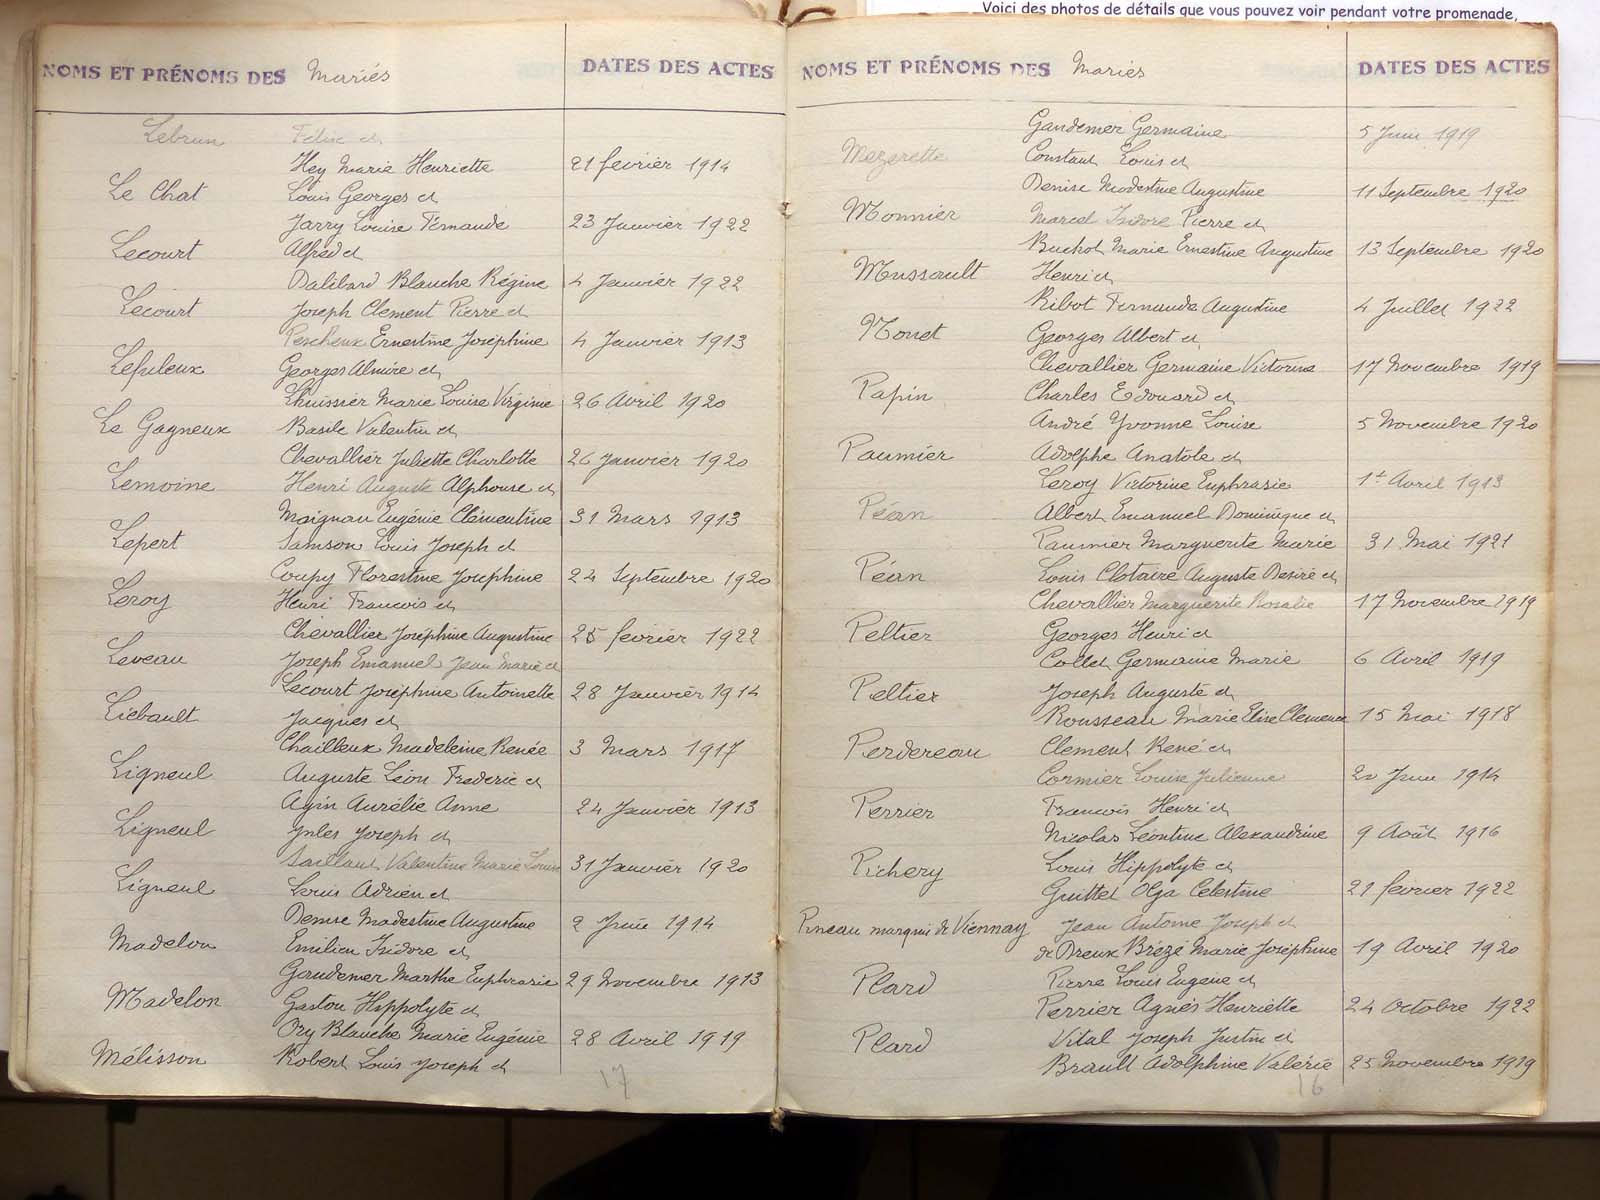 Voici des photos de détails que vous pouvez voir pendant votre promenade,
NOMS ET PRÉNOMS DES Mariés DATES DES ACTES
Lebrun Félix et
Hey Marie Henriette 21 fevrier 1914
Le Chat Louis Georges et
Jarry Louise Fernande 23 Janvier 1922
Lecourt Alfred et
Dalibard Blanche Régine 4 Janvier 1922
Lecourt Joseph Clement Pierre et
Pescheux Ernestine Joséphine 4 Janvier 1913
Lefuleux Georges Almire et
Lhuissier Marie Louise Virginie 26 Avril 1920
Le Gagneux Basile Valentin et
Chevallier Juliette Charlotte 26 Janvier 1920
Lemoine Henri Auguste Alphonse et
Maignan Eugénie Clémentine 31 Mars 1913
Lepert Samson Louis Joseph et
Coupy Florestine Joséphine 24 Septembre 1920
Leroy Henri Francois et
Chevallier Joséphine Augustine 25 fevrier 1922
Leveau Joseph Emanuel Jean Marie et
Lecourt Joséphine Antoinette 28 Janvier 1914
Liebault Jacques et
Chailleux Madeleine Renée 3 Mars 1917
Ligneul Auguste Léon Frederic et
Agin Aurélie Anne 24 Janvier 1913
Ligneul Jules Joseph et
Saillant Valentine Marie Louise 31 Janvier 1920
Ligneul Louis Adrien et
Denise Modestine Augustine 2 Juin 1914
Madelon Emilien Isidore et
Gandemer Marthe Euphrasie 29 Novembre 1913
Madelon Gaston Hippolyte et
Ory Blanche Marie Eugénie 28 Avril 1919
Mélisson Robert Louis Joseph et
17
NOMS ET PRÉNOMS DES Mariés DATES DES ACTES
Gandemer Germaine 5 Juin 1919
Mezerette Constant Louis et
Denise Modestine Augustine 11 Septembre 1920
Monnier Marcel Isidore Pierre et
Buchot Marie Ernestine Augustine 13 Septembre 1920
Mussault Henri et
Ribot Fernande Augustine 4 Juillet 1922
Monet Georges Albert et
Chevallier Germaine Victorine 17 Novembre 1919
Papin Charles Edouard et
André Yvonne Louise 5 Novembre 1920
Paumier Adolphe Anatole et
Leroy Victorine Euphrasie 1er Avril 1913
Péan Albert Emanuel Dominique et
Paumier Marguerite Marie 31 Mai 1921
Péan Louis Clotaire Auguste Desiré et
Chevallier Marguerite Rosalie 17 Novembre 1919
Peltier Georges Henri et
Collet Germaine Marie 6 Avril 1919
Peltier Joseph Auguste et
Rousseau Marie Elise Clemence 15 Mai 1918
Perdereau Clement René et
Cormier Louise Julienne 20 Juin 1914
Perrier Francois Henri et
Nicolas Léontine Alexandrine 9 Août 1916
Pichery Louis Hippolyte et
Guittet Olga Celestine 21 fevrier 1922
Pineau marquis de Viennay Jean Antoine Joseph et
de Dreux Brézé Marie Joséphine 19 Avril 1920
Plard Pierre Louis Eugene et
Perrier Agnès Henriette 24 Octobre 1922
Plard Vital Joseph Justin et
Brault Adolphine Valérie 25 Novembre 1919
16